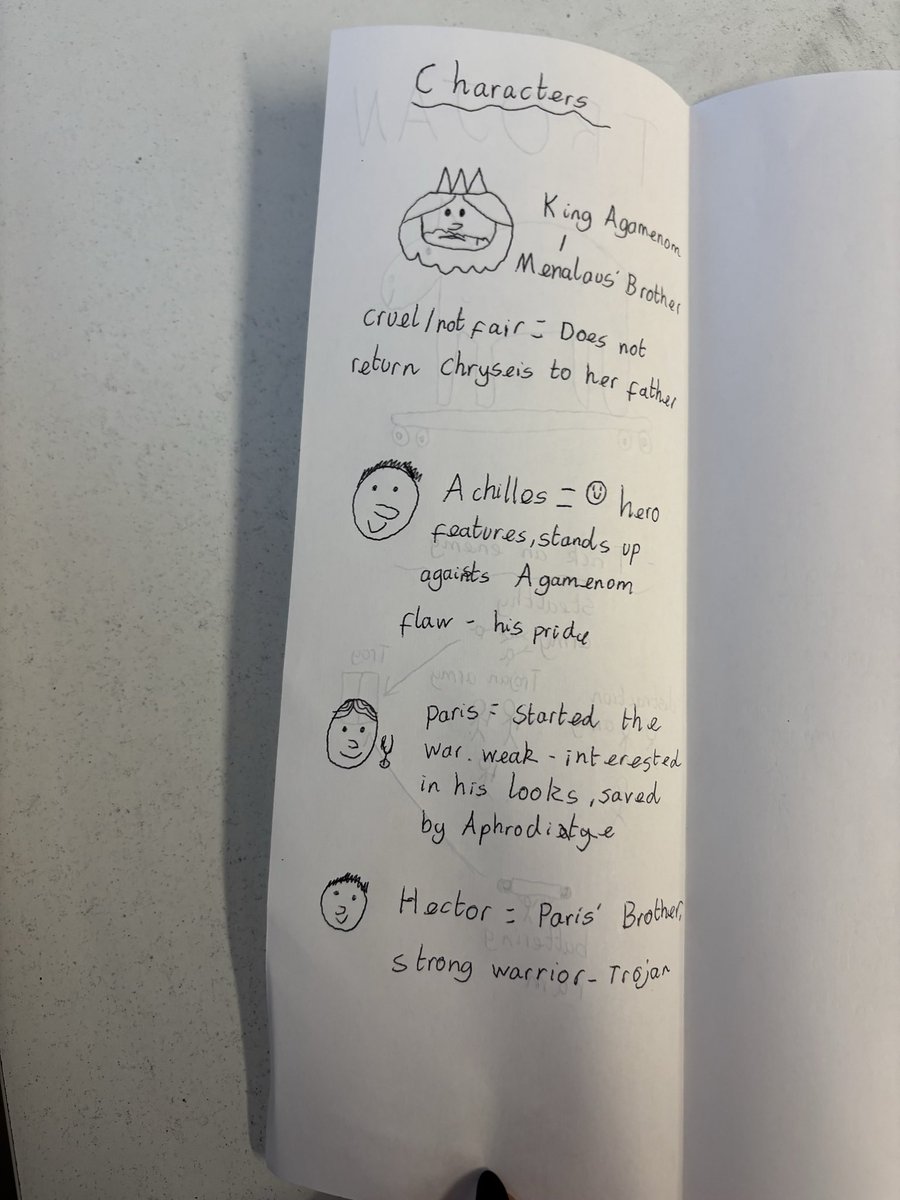 Characters
King Agamenom
Menalaus' Brother
cruel/not fair = Does not
return Chryseis to her father
Achilles = ☺ hero
features, stands up
against Agamenom
flaw - his pride
Paris = started the
war. weak - interested
in his looks, saved
by
Hector = Paris' Brother,
strong warrior - Trojan
TROJAN
Troy
Trojan army